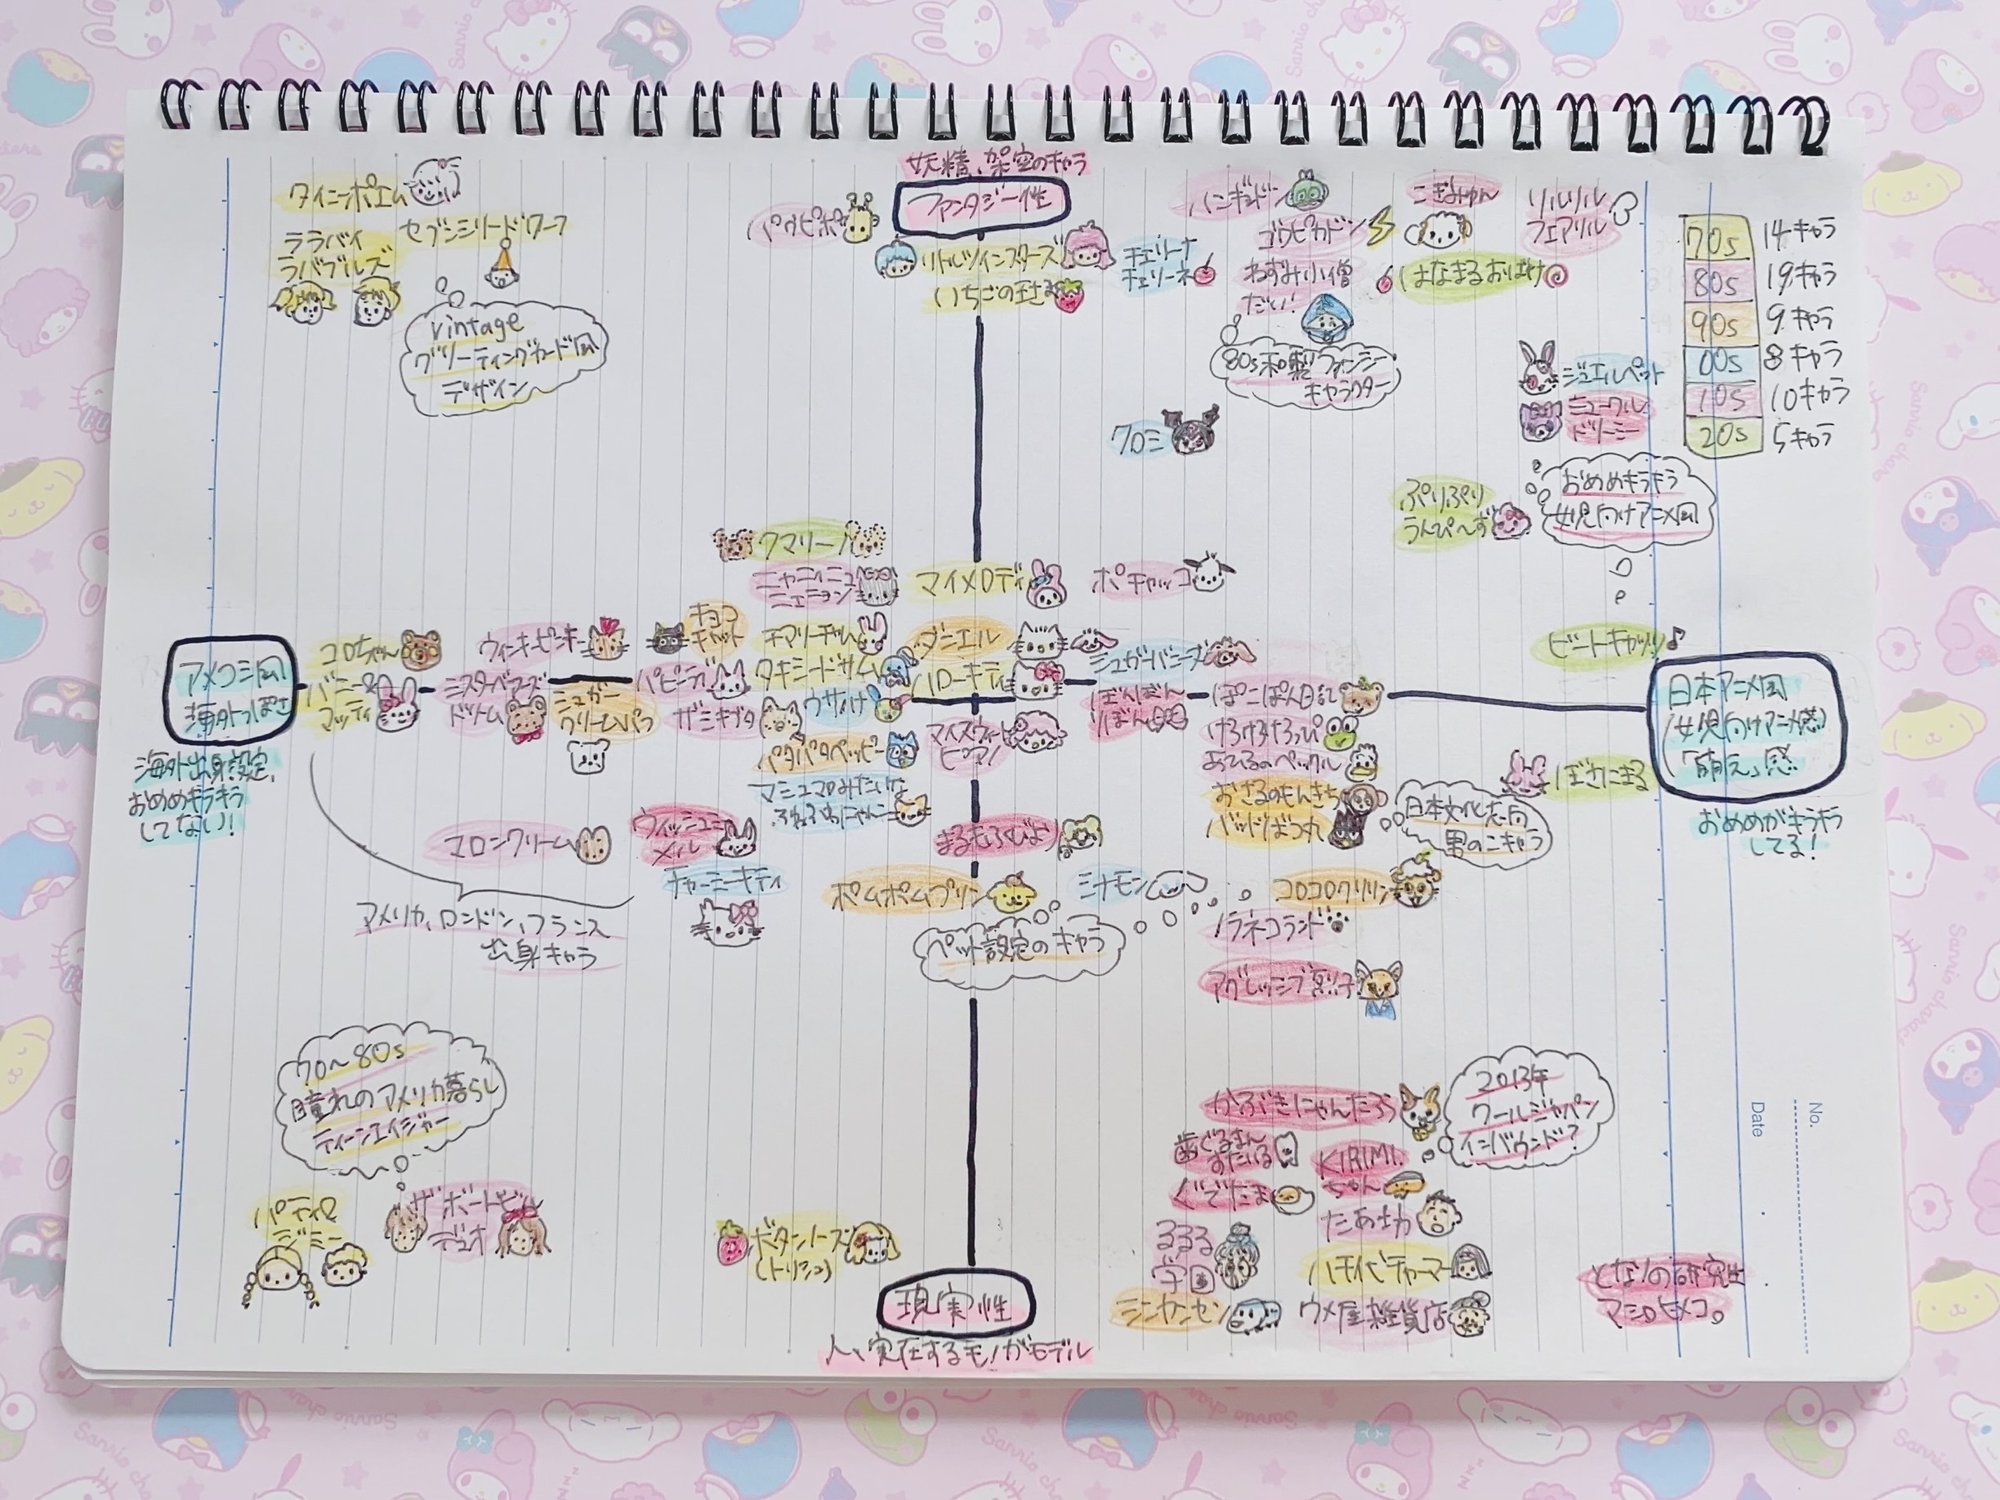 妖精、架空のキャラ
ファンタジー性
タイニーポエム
セブンシリードワーフ
ララバイ
ラバブルズ
vintage
グリーティングカード風
デザイン
パウピポ
リトルツインスターズ
いちごの王さま
チェリーナ
チェリーネ
ハンギョドン
ゴロピカドン
ねずみ小僧
だい!
80s和製ファンシー
キャラクター
こぎみゅん
はなまるおばけ
リルリル
フェアリル
70s 14キャラ
80s 19キャラ
90s 9キャラ
00s 8キャラ
10s 10キャラ
20s 5キャラ
ジュエルペット
ミュークル
ドリーミー
おめめキラキラ
女児向けアニメ風
クロミ
ぷりぷり
うんぴ〜ず
クマリーノ
ニャニィニュ
ニェニョン
マイメロディ
ポチャッコ
アメコミ風
海外っぽさ
海外出身設定、
おめめキラキラ
してない!
コロちゃん
バニー&
マッティ
ウィーキーピンキー
ミスターベアーズ
ドリーム
シュガー
クリームパフ
チョコ
キャット
パピーラブ
ザシキブタ
チアリーチャム
タキシードサム
ウサハナ
パタパタペッピー
マシュマロみたいな
ふわふわにゃんこ
ダニエル
ハローキティ
マイスウィート
ピアノ
シュガーバニーズ
ぼんぼん
りぼん
ぽこぽん日記
けろけろけろっぴ
あひるのペックル
おさるのもんきち
バッドばつ丸
日本文化志向
男のこキャラ
ビートキャッツ
日本アニメ風
(女児向けアニメ感)
「萌え」感
ぼさにまる
おめめがキラキラ
してる!
マロンクリーム
ウィッシュミー
メル
チャーミーキティ
まるもふびより
ポムポムプリン
シナモン
コロコロクリリン
ノラネコランド
ペット設定のキャラ
アメリカ、ロンドン、フランス
出身キャラ
アグレッシブ烈子
70〜80s
憧れのアメリカ暮らし
ティーンエイジャー
パティ&
ジミー
ザ ボードビル
デュオ
ボタンノーズ
(トリシュ)
現実性
人、実在するモノがモデル
かぶきにゃんたろう
歯ぐるまん
すたいる
KIRIMI.
ちゃん
ぐでたま
たあ坊
るるる
学園
ハチイピチャーマー
シンカンセン
ウメ屋雑貨店
2013年
クールジャパン
インバウンド?
となりの研究生
マシロヒメコ。
No.
Date